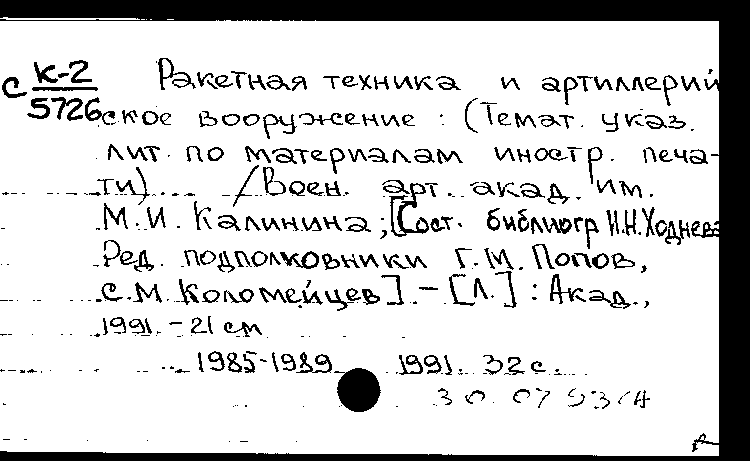 с К-2 Ракетная техника и артиллерий
5726 ское вооружение : (Темат. указ.
лит. по материалам иностр. печа-
ти) ... / Воен. арт. акад. им.
М.И. Калинина; [Сост. библиогр И.Н.Ходнева
Ред. подполковники Г.М. Попов,
С.М. Коломейцев] . - [Л.] : Акад.,
1991. - 21 см
1985-1989 1991. 32 с.
30 07 93